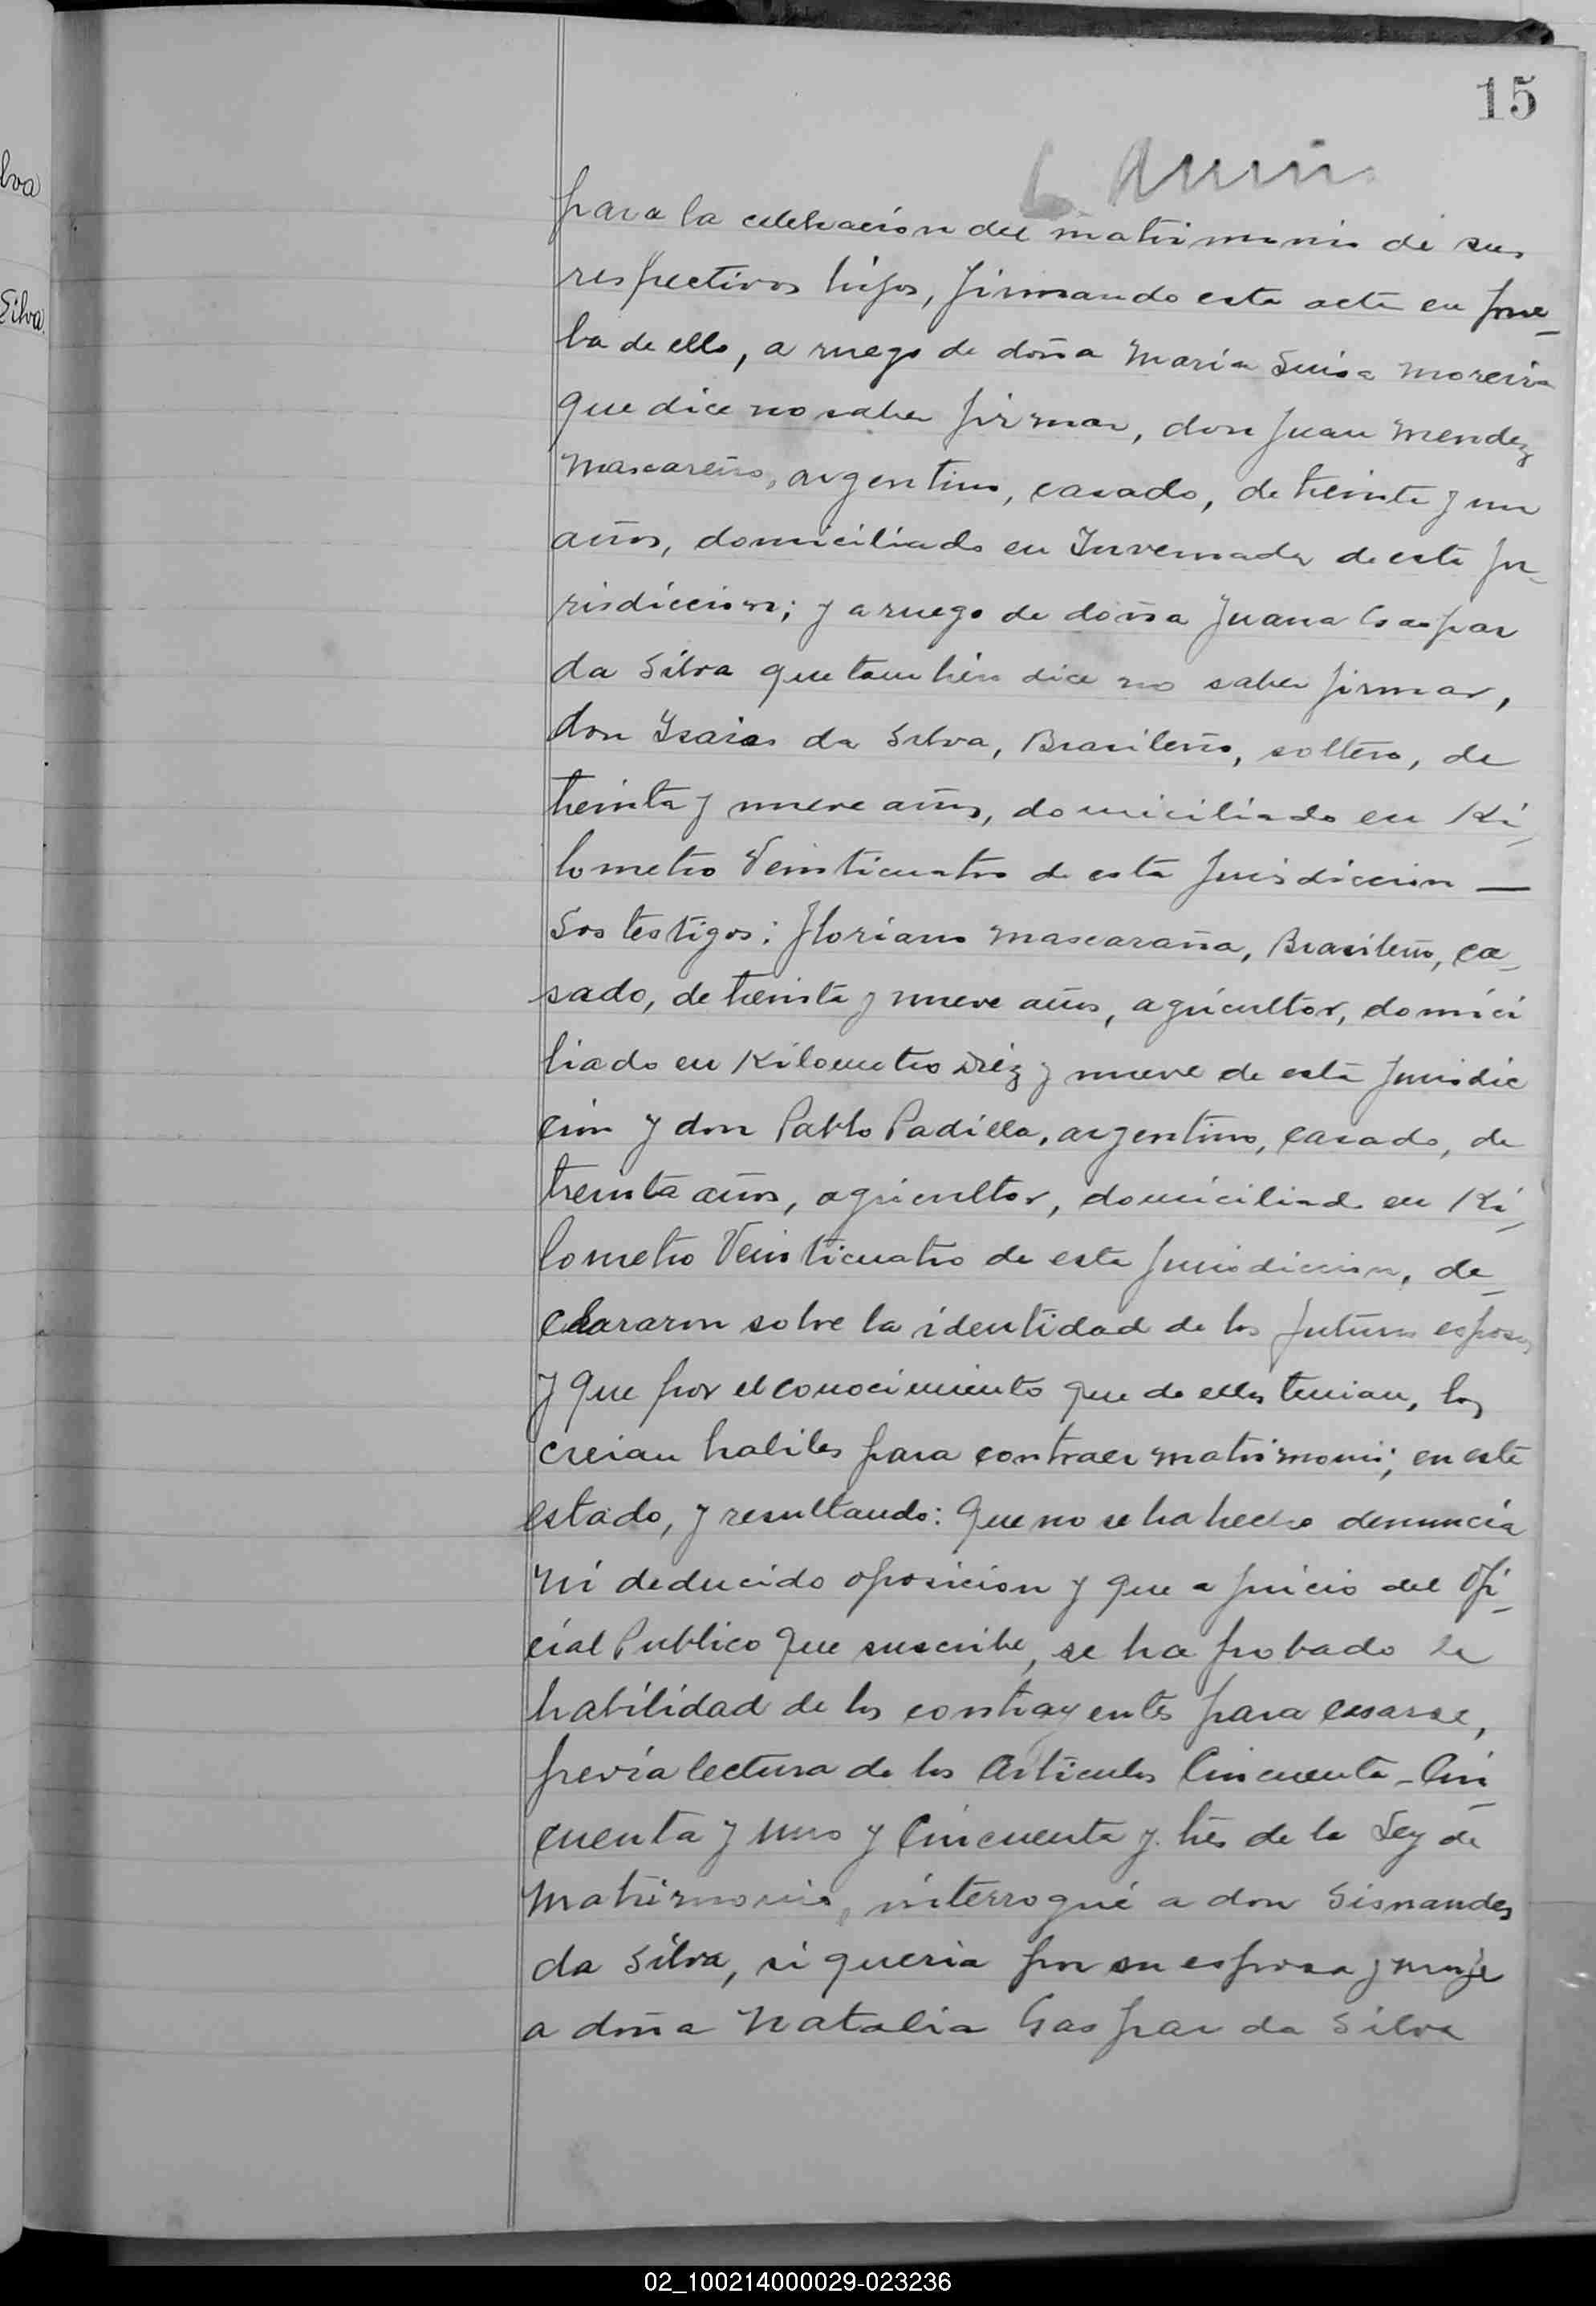 lva
Silva
15
para la celebración del matrimonio de sus
respectivos hijos, firmando esta acta en prue-
ba de ello, a ruego de doña Maria Luisa Moreira
que dice no saber firmar, don Juan Mendez
Mascareño, argentino, casado, de treinta y un
años, domiciliado en Invernada de esta ju-
risdiccion; y a ruego de doña Juana Gaspar
da Silva que tambien dice no saber firmar,
don Ysaias da Silva, Brasileño, soltero, de
treinta y nueve años, domiciliado en Ki-
lometro Veinticuatro de esta Jurisdiccion —
Los testigos: Floriano Mascaraña, Brasileño, ca-
sado, de treinta y nueve años, agricultor, domici
liado en Kilometro Diéz y nueve de esta Jurisdic
cion y don Pablo Padilla, argentino, casado, de
treinta años, agricultor, domiciliado en Ki-
lometro Veinticuatro de esta Jurisdiccion, de-
clararon sobre la identidad de los futuros esposos
y que por el conocimiento que de ellos tenian, los
creian habiles para contraer matrimonio; en este
estado, y resultando: Que no se ha hecho denuncia
ni deducido oposicion y que a juicio del Ofi-
cial Publico que suscribe, se ha probado la
habilidad de los contrayentes para casarse,
previa lectura de los Articulos Cincuenta - Cin-
cuenta y uno y Cincuenta y tres de la Ley de
Matrimonio, interrogué a don Sisnandes
da Silva, si queria por su esposa y mujer
a doña Natalia Gaspar da Silva
02_100214000029-023236